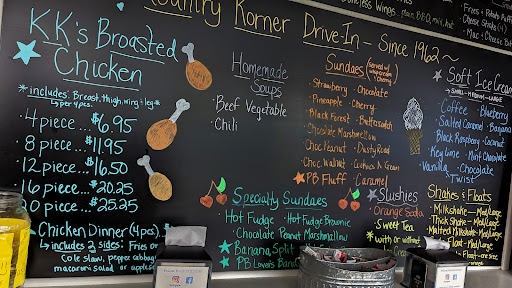 Country Korner Drive-In ~ Since 1962 ~
KK's Broasted
Chicken
*includes: Breast, thigh, wing & leg*
↳per 4pcs.
4 piece...$6.95
8 piece...$11.95
12 piece...$16.50
16 piece...$20.25
20 piece...$25.25
Chicken Dinner (4pcs.)
↳includes 2 sides: Fries or
Cole slaw, pepper cabbage,
macaroni salad or applesauce
Homemade
Soups
·Beef Vegetable
·Chili
Sundaes (Served w/
whipcream +
Cherry
·Strawberry ·Chocolate
·Pineapple ·Cherry
·Black Forest ·Butterscotch
·Chocolate Marshmallow
·Choc Peanut ·Dusty Road
·Choc Walnut ·Cookies N Cream
PB Fluff ·Caramel
Specialty Sundaes
Hot Fudge ·Hot Fudge Brownie
·Chocolate Peanut Marshmallow
Banana Split
PB Lover's
Slushies
Orange Soda
Sweet Tea
with or without
Wings
Fries
Cheese Steak
Mac + Cheese
Soft Ice Cream
SMALL - MEDIUM - LARGE
·Coffee ·Blueberry
·Salted Caramel ·Banana
·Black Raspberry ·Coconut
·Key Lime ·Mint Chocolate
·Vanilla ·Chocolate
·Twist
Shakes & Floats
·Milkshake - Med/Large
Thick Shake - Med/Large
Malted Milkshake - Med/Large
Float - Med/Large
Float - one size